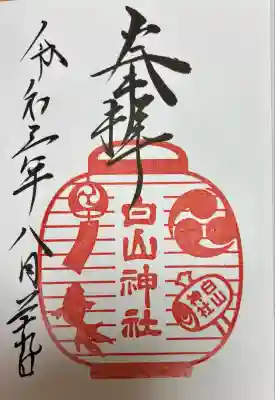 奉拝
白山神社
白山
神社
令和三年八月